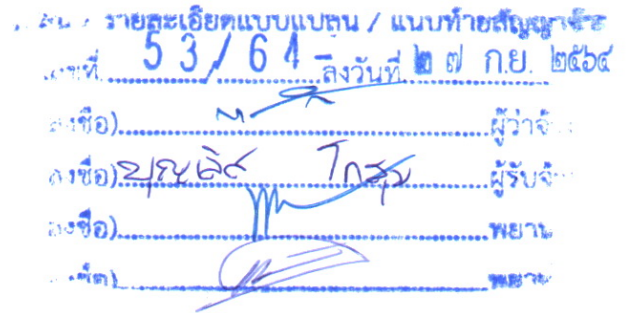 รายละเอียดแบบแปลน / แนบท้ายสัญญาจ้าง
เลขที่ 53/64 ลงวันที่ ๒๗ ก.ย. ๒๕๖๔
ลงชื่อ) ผู้ว่าจ้าง
ลงชื่อ) บุญเลิศ โกสุม ผู้รับจ้าง
ลงชื่อ) พยาน
ลงชื่อ) พยาน